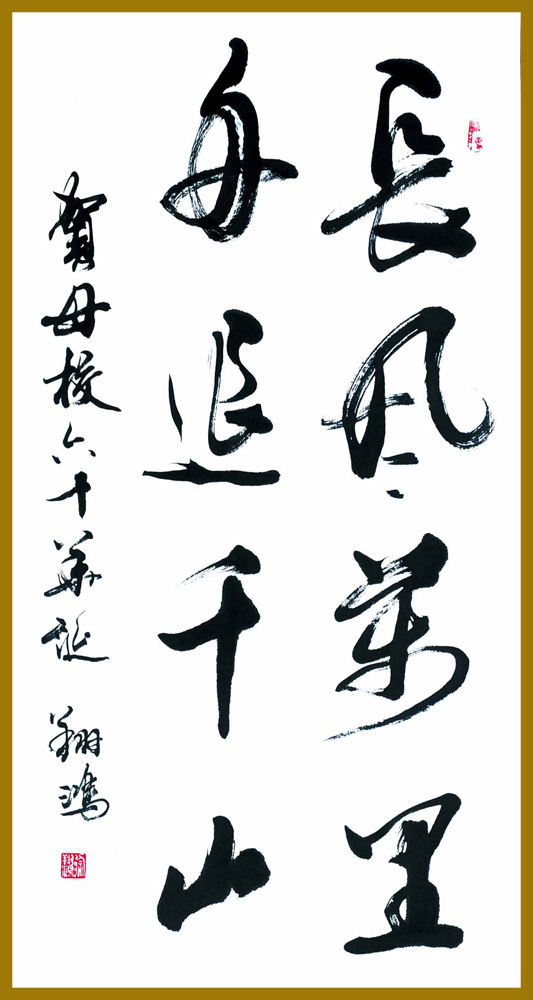 長風萬里
舟追千山
賀母校六十華誕 翔鴻